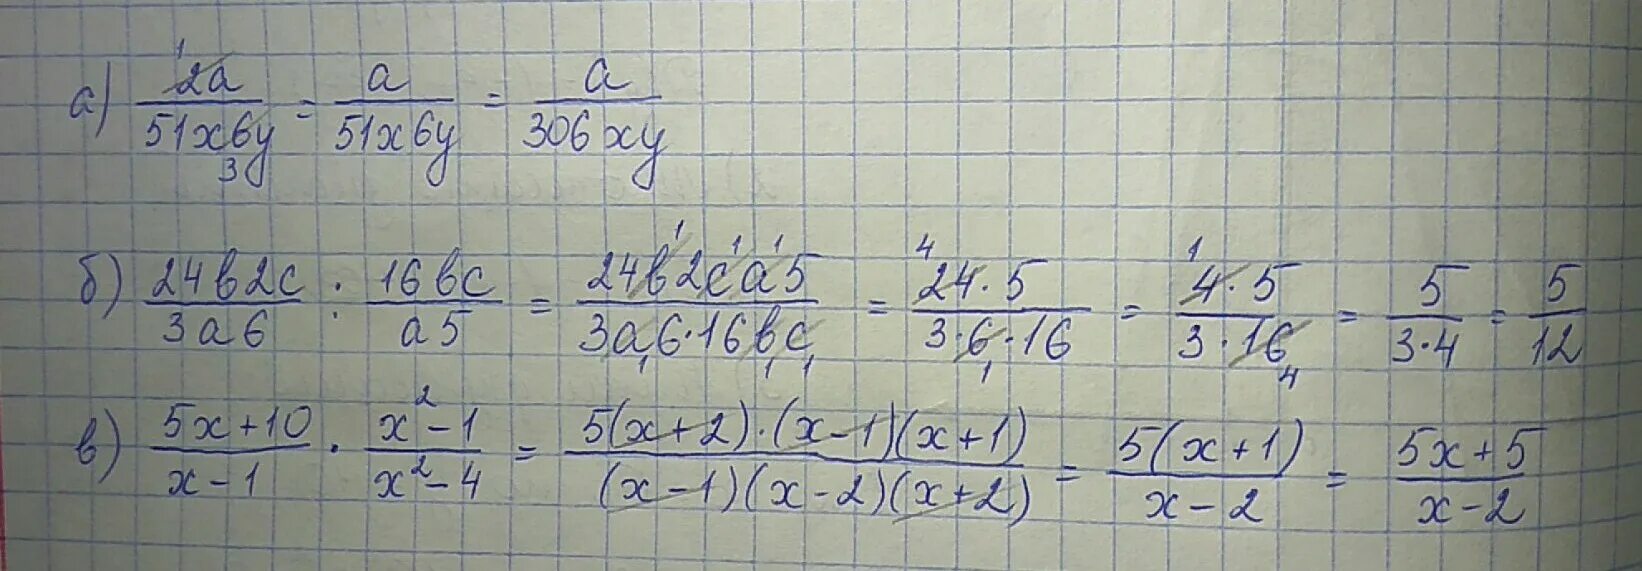 а) 2a/51x6y = a/51x6y = a/306xy
1 3
б) 24b2c/3a6 : 16bc/a5 = 24b2ca5/3a6·16bc = 24·5/3·6·16 = 4·5/3·16 = 5/3·4 = 5/12
1 1 1 1 1 1 4 1 1 4
в) 5x+10/x-1 · x²-1/x²-4 = 5(x+2)·(x-1)(x+1)/(x-1)(x-2)(x+2) = 5(x+1)/x-2 = 5x+5/x-2